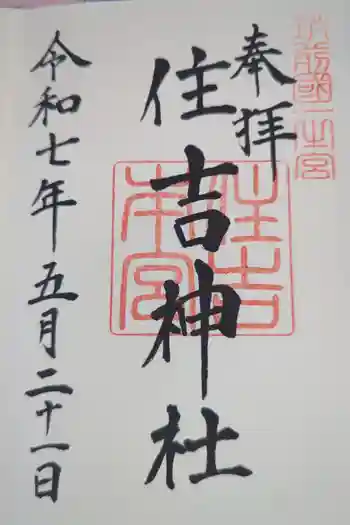 筑前國一之宮
奉拝
住吉神社
住吉本宮
令和七年五月二十一日